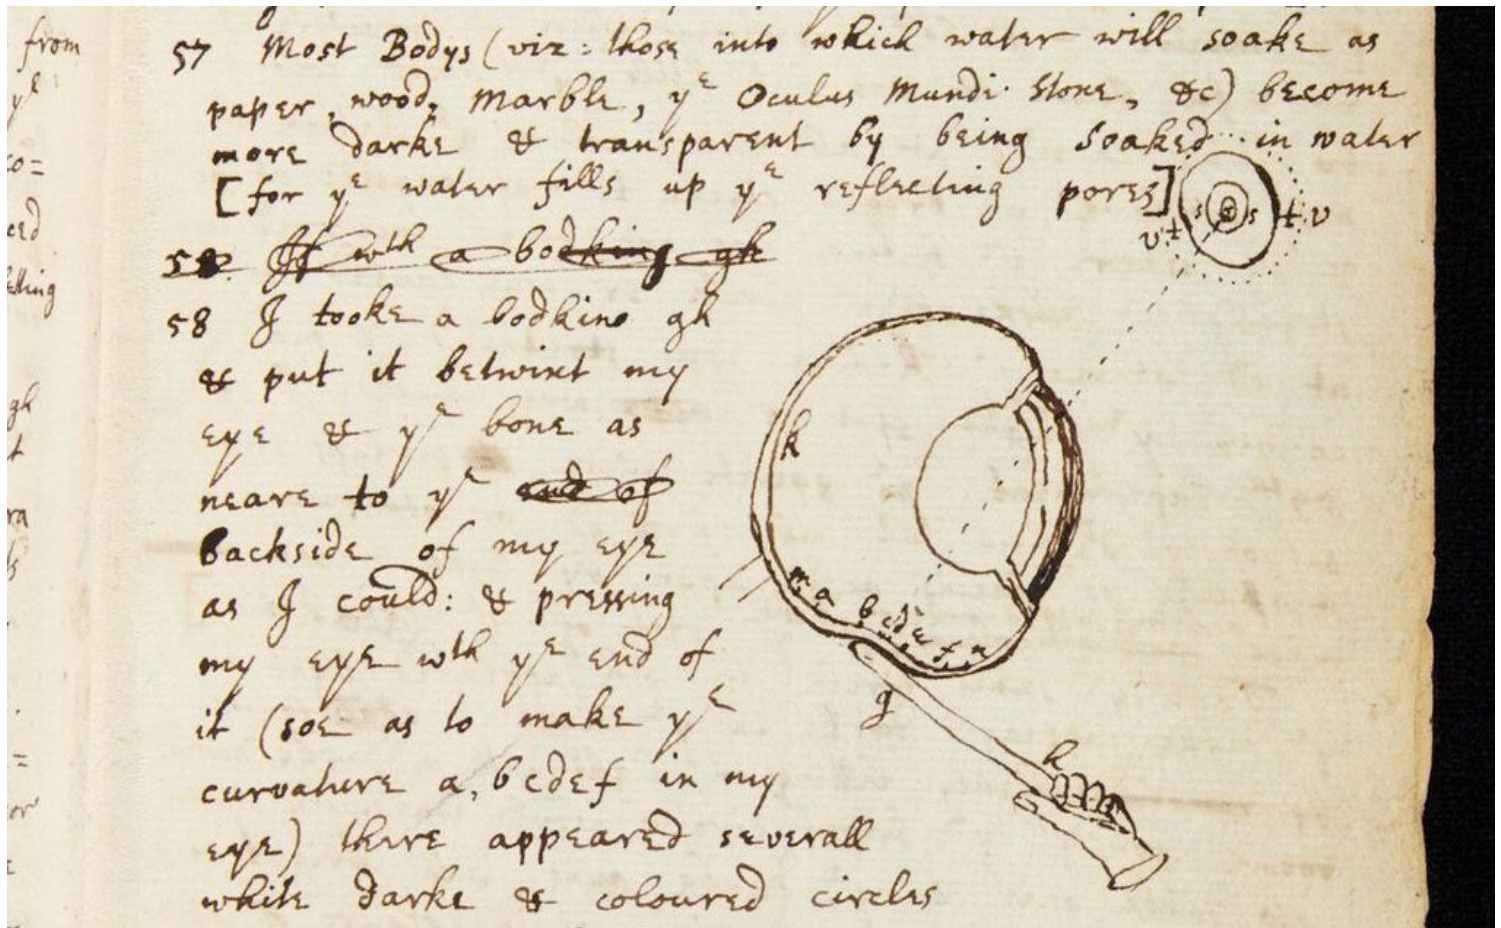 from
57 Most Bodys (viz: those into which water will soake as
paper, wood, Marble, yᵉ Oculus Mundi Stone, &c) become
more darke & transparent by being soaked in water
[for yᵉ water fills up yᵉ reflecting pores]
58 If wth a bodking gh
58 I tooke a bodkine gh
& put it betwixt my
eye & yᵉ bone as
neare to yᵉ end of
backside of my eye
as I could: & pressing
my eye wth yᵉ end of
it (soe as to make yᵉ
curvature a, bcdef in my
eye) there appeared severall
white darke & coloured circles
s s
v t t v
k
m a b c d e f n
g
h